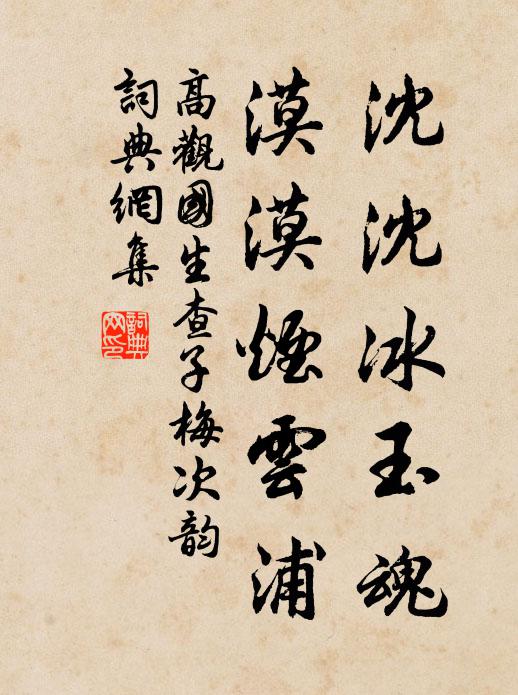 沈沈冰玉魂
漠漠煙雲浦
高觀國生查子梅次韵
詞典網集
詞典網印